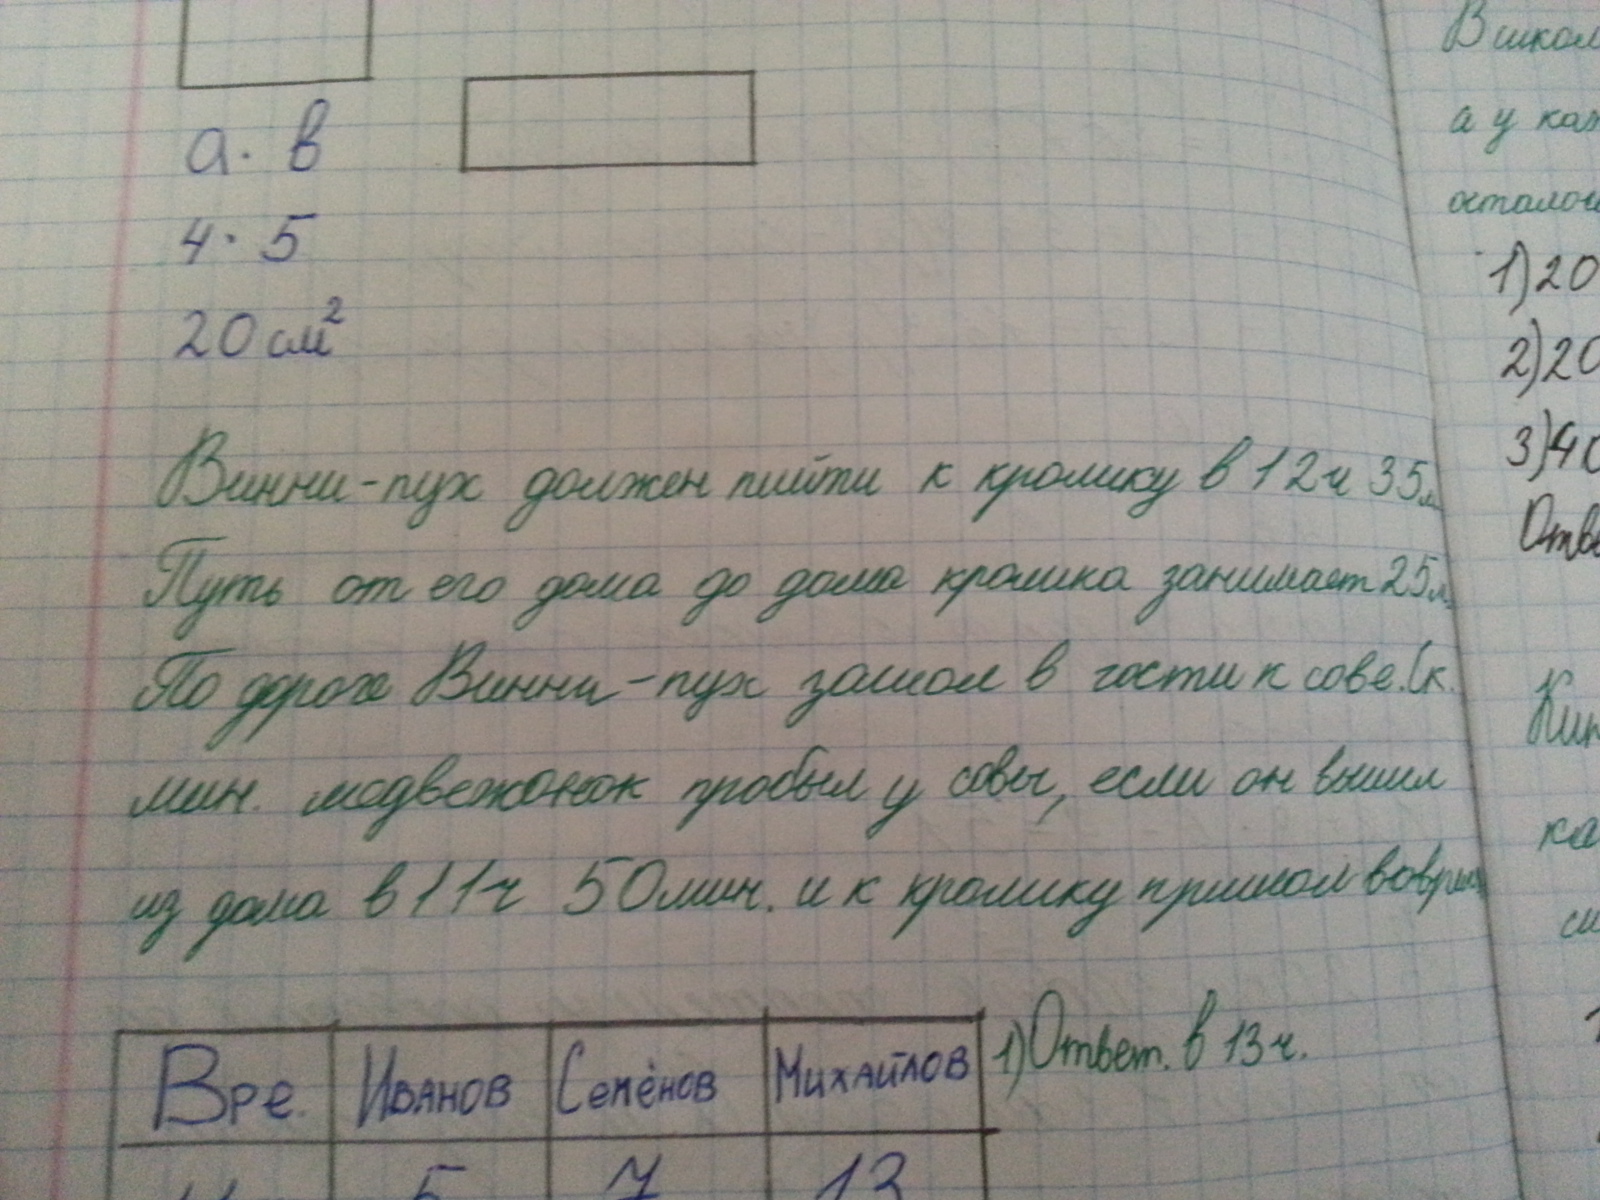 а · в
4 · 5
20 см²
Винни-пух должен пийти к кролику в 12ч 35м
Путь от его дома до дома кролика занимает 25м
По дороге Винни-пух зашол в гости к сове. (к.
мин. медвежонок пробыл у совы, если он вышил
из дома в 11ч 50мин. и к кролику пришол вовремя
Вре. Иванов Семёнов Михайлов
5 7 13
1) Ответ. в 13ч.
В школ
а у каж
осталось
1) 20
2) 20
3) 40
Отве
ка